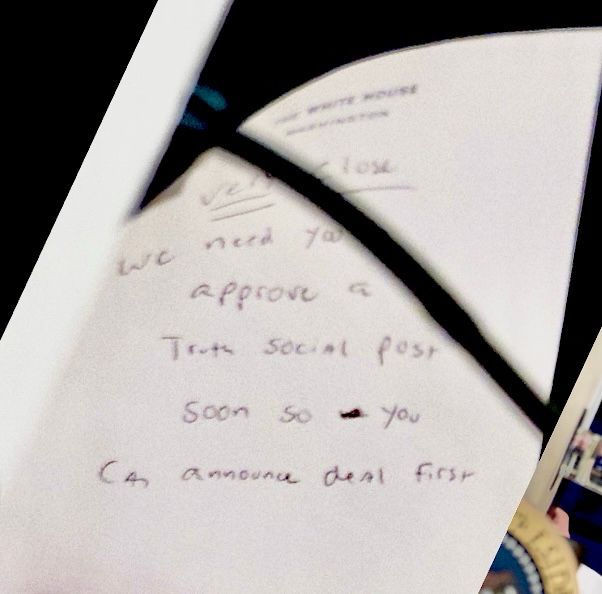 THE WHITE HOUSE
WASHINGTON
very close
we need you
approve a
Truth Social post
soon so you
can announce deal first